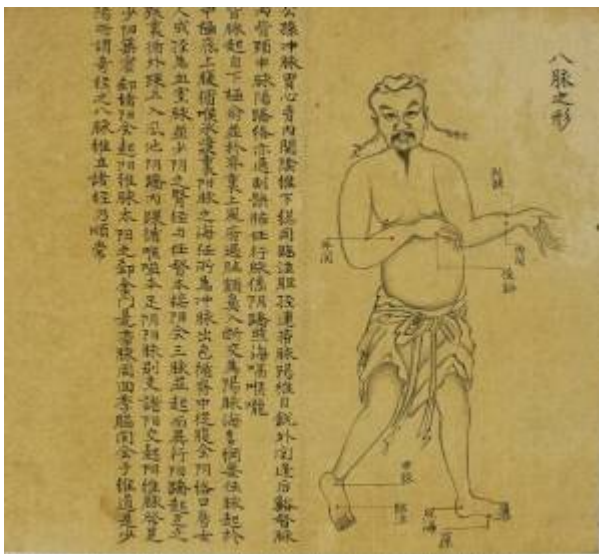 八脉之形
列缺
外関
内関
後谿
申脉
臨泣
照海
公孫冲脉胃心胷内関陰維下総同臨泣胆経連帯脉陽維目鋭外関逢后谿督脉
内眥頸申脉陽蹻絡亦通列缺肺任行肺係陰蹻照海膈喉嚨
督脉起自下極俞並於脊裏上風府過脳額鼻入齗交為陽脉海督綱要任脉起於
中極底上腹循喉承漿裏陰脉之海任所為冲脉出胞循脊中従腹会咽絡口唇女
人成経為血室脉並少陰之腎経与任督本於陰会三脉並起而異行陽蹻起足之
跟裏循外踝上入風池陰蹻内踝循喉嗌本足陰陽脉別支諸陰交起陰維脉発足
少陰築賓郄諸陽会起陽維脉太陽之郄金門是帯脉周回季脇間会於維道足少
陽所謂奇経之八脉維系諸経乃順常